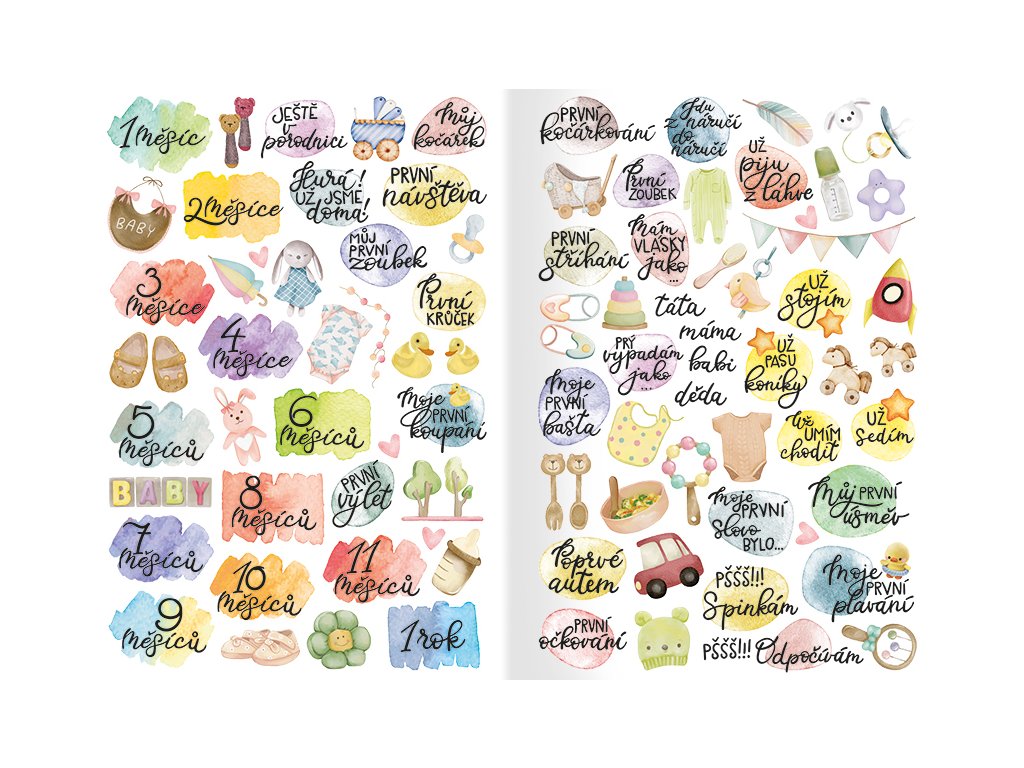 1 Měsíc
JEŠTĚ
v
porodnici
Můj
kočárek
BABY
2 Měsíce
Hurá!
UŽ JSME
doma!
PRVNÍ
návštěva
MŮJ
PRVNÍ
zoubek
3
Měsíce
První
KRŮČEK
4
Měsíce
5
Měsíců
6
Měsíců
Moje
PRVNÍ
koupání
BABY
8
Měsíců
PRVNÍ
výlet
7
Měsíců
10
Měsíců
11
Měsíců
9
Měsíců
1 rok
PRVNÍ
kočárkování
Jdu
z náručí
do
náručí
UŽ
piju
z láhve
První
ZOUBEK
PRVNÍ
stříhání
Mám
VLÁSKY
jako
...
UŽ
stojím
táta
máma
babi
děda
PRÝ
vypadám
jako
...
UŽ
PASU
koníky
Moje
PRVNÍ
bašta
Už
UMÍM
chodit
UŽ
sedím
Moje
PRVNÍ
slovo
BYLO...
Můj PRVNÍ
úsměv
Poprvé
autem
PŠŠŠ!!!
Spinkám
Moje
PRVNÍ
plavání
PRVNÍ
očkování
PŠŠŠ!!! Odpočívám